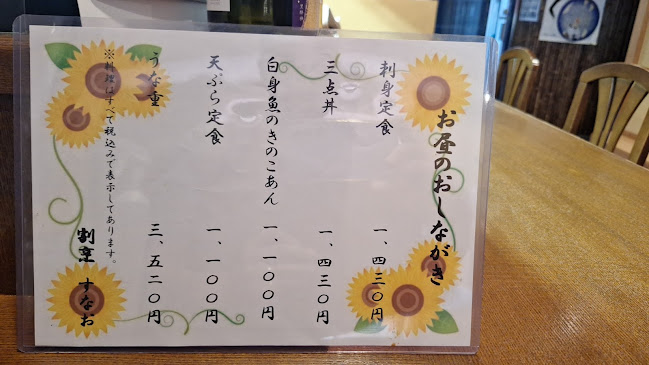 お昼のおしながき
刺身定食 一、四三〇円
三点丼 一、四三〇円
白身魚のきのこあん 一、一〇〇円
天ぷら定食 一、一〇〇円
うな重 三、五二〇円
※料理はすべて税込みで表示してあります。
割烹 すなお